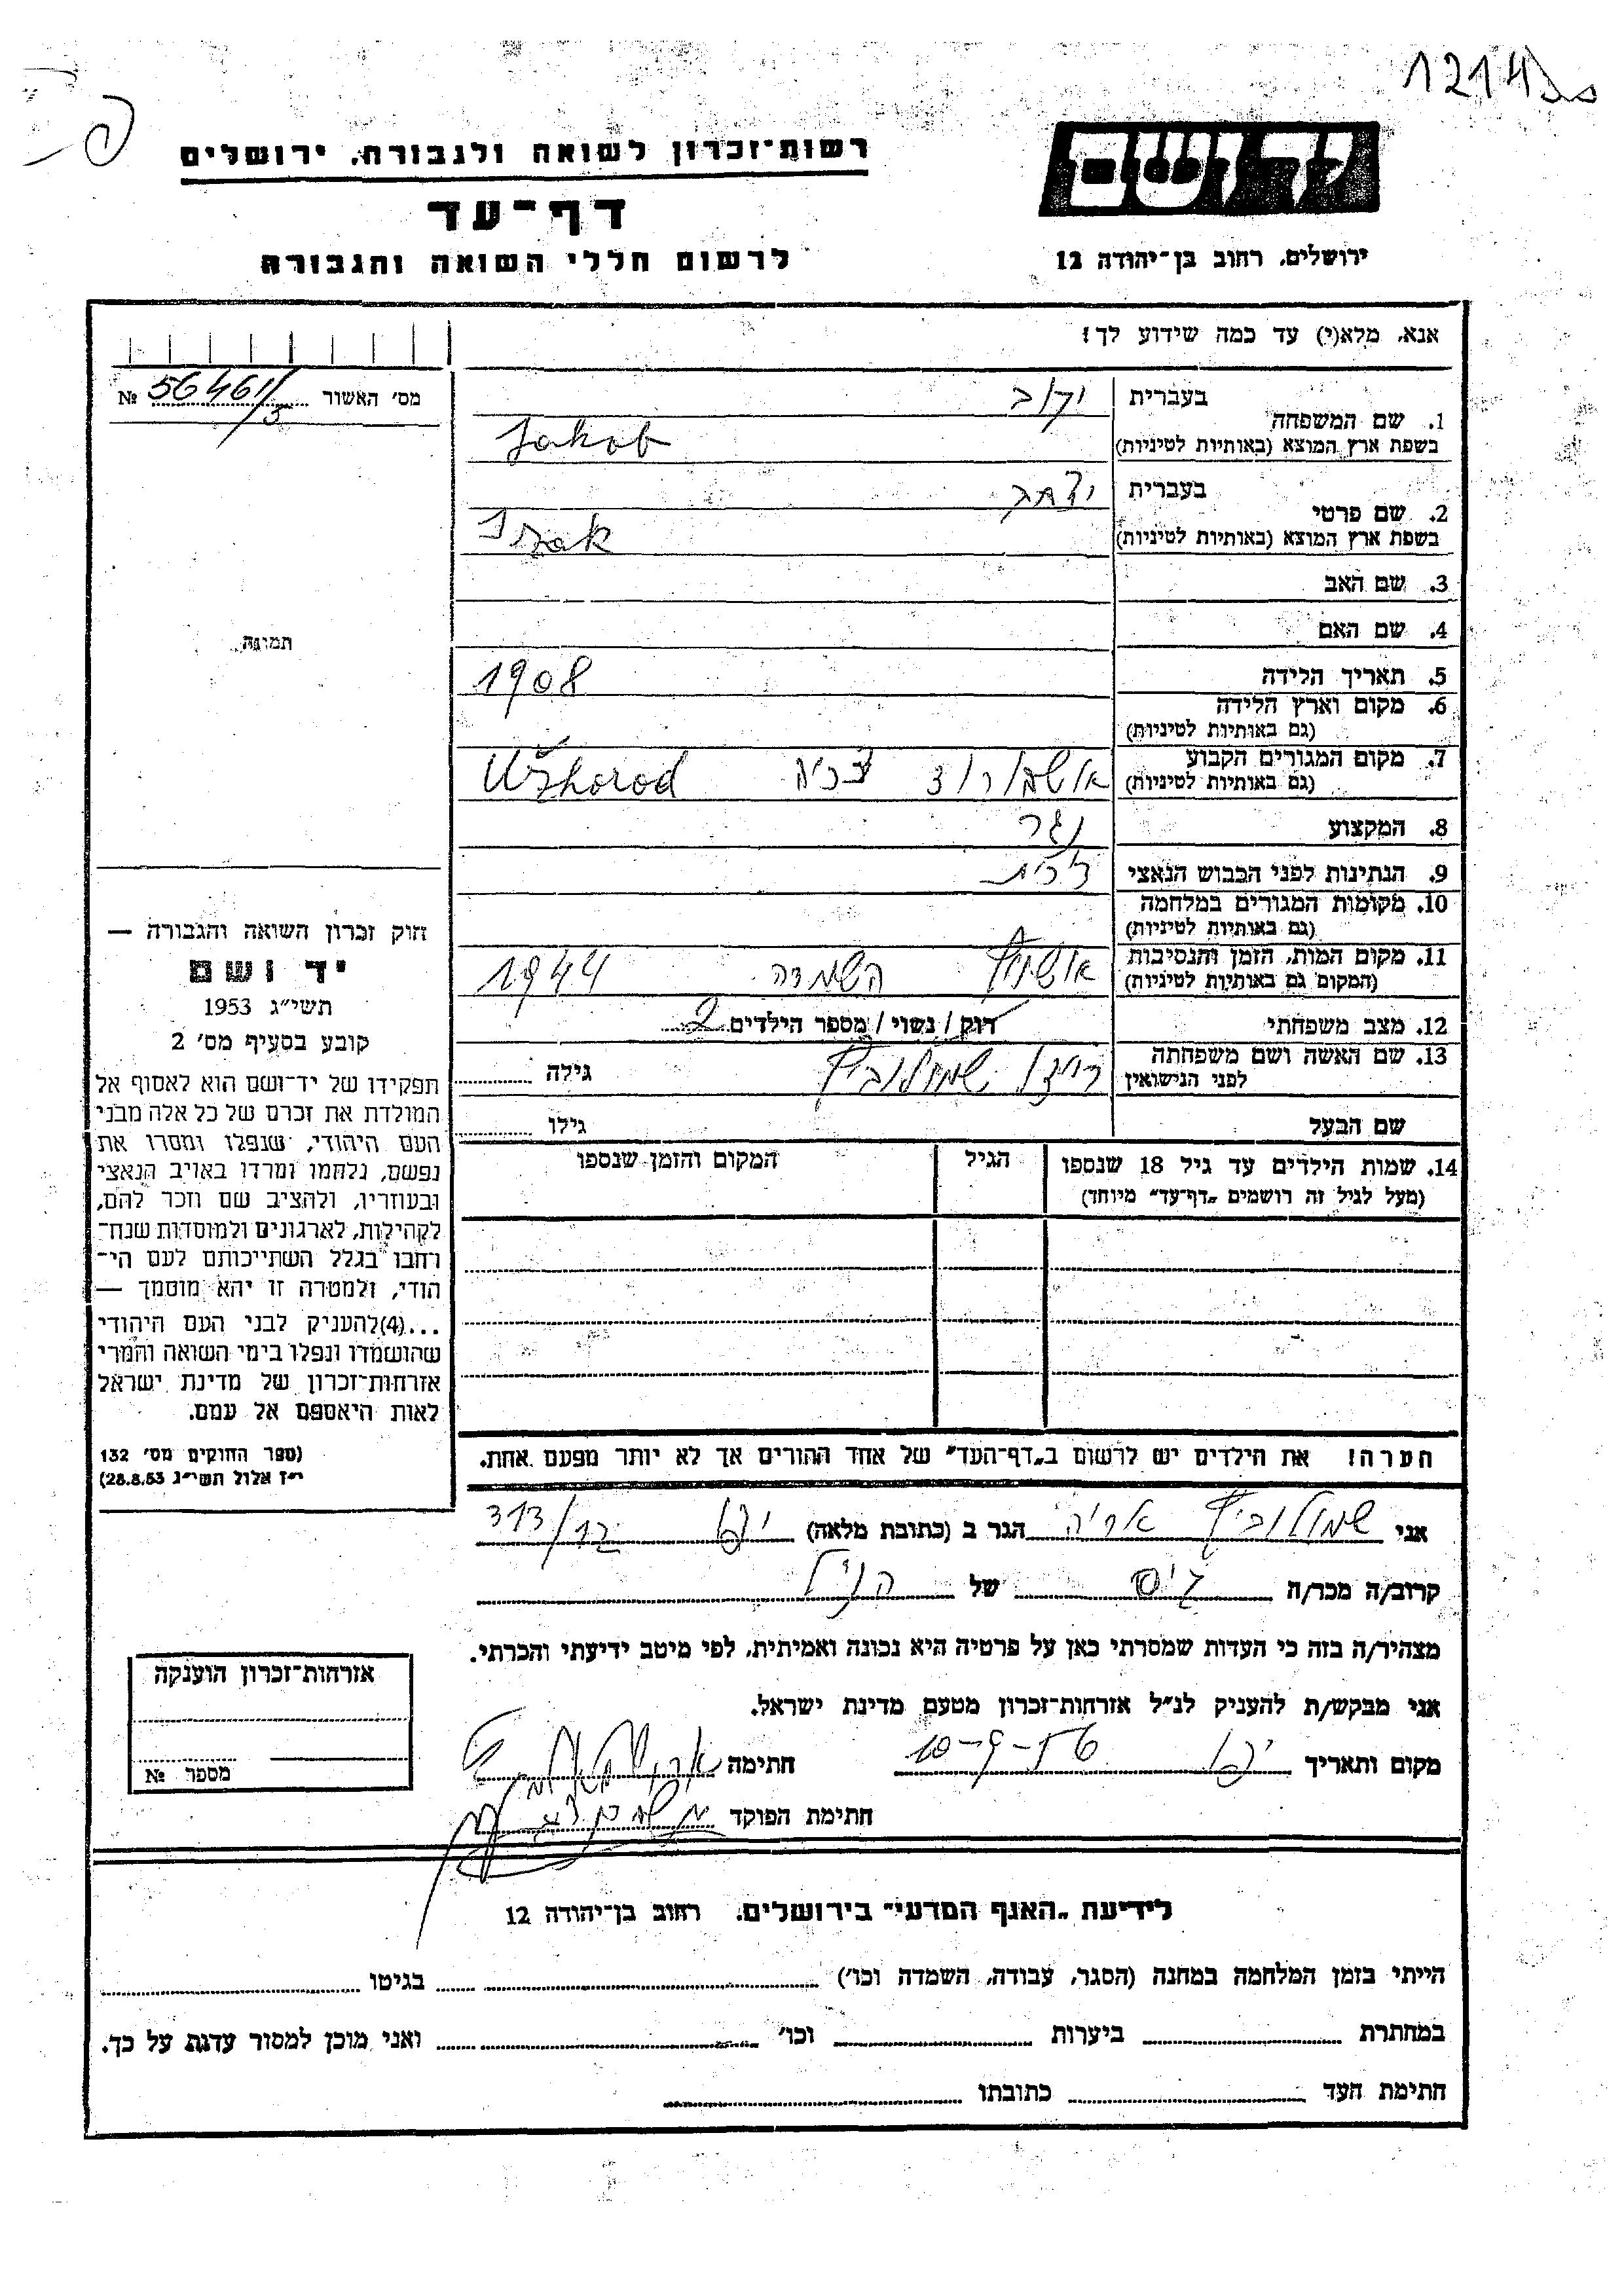 1214
רשות־זכרון לשואה ולגבורה, ירושלים
יד ושם
דף־עד
לרשום חללי השואה והגבורה
ירושלים, רחוב בן־יהודה 12
אנא, מלא(י) עד כמה שידוע לך!
מס׳ האשור 56461/3 №
1. שם המשפחה
בעברית יקוב
בשפת ארץ המוצא (באותיות לטיניות) Jakob
2. שם פרטי
בעברית יצחק
בשפת ארץ המוצא (באותיות לטיניות) Iszak
3. שם האב
4. שם האם
תמונה
5. תאריך הלידה 1908
6. מקום וארץ הלידה
(גם באותיות לטיניות)
7. מקום המגורים הקבוע
(גם באותיות לטיניות) אושהורוד צ׳כיה Užhorod
8. המקצוע נגר
9. הנתינות לפני הכבוש הנאצי צ׳כית
10. מקומות המגורים במלחמה
(גם באותיות לטיניות)
11. מקום המות, הזמן והנסיבות
(המקום גם באותיות לטיניות) אושויץ השמדה 1944
12. מצב משפחתי רווק / נשוי / מספר הילדים 2
13. שם האשה ושם משפחתה
לפני הנישואין שמולוביץ גילה
שם הבעל גילו
14. שמות הילדים עד גיל 18 שנספו
(מעל לגיל זה רושמים „דף־עד״ מיוחד)
הגיל
המקום והזמן שנספו
הערה! את הילדים יש לרשום ב„דף־העד״ של אחד ההורים אך לא יותר מפעם אחת.
חוק זכרון השואה והגבורה —
יד ושם
תשי״ג 1953
קובע בסעיף מס׳ 2
תפקידו של יד־ושם הוא לאסוף אל
המולדת את זכרם של כל אלה מבני
העם היהודי, שנפלו ומסרו את
נפשם, נלחמו ומרדו באויב הנאצי
ובעוזריו, ולהציב שם וזכר להם,
לקהילות, לארגונים ולמוסדות שנח־
רבו בגלל השתייכותם לעם הי־
הודי, ולמטרה זו יהא מוסמך —
...(4) להעניק לבני העם היהודי
שהושמדו ונפלו בימי השואה והמרי
אזרחות־זכרון של מדינת ישראל
לאות היאספם אל עמם.
(ספר החוקים מס׳ 132
י״ז אלול תשי״ג 28.8.53)
אני שמולוביץ אריה הגר ב (כתובת מלאה) יפו 313/12
קרוב/ה מכר/ה גיס של הנ״ל
מצהיר/ה בזה כי העדות שמסרתי כאן על פרטיה היא נכונה ואמיתית, לפי מיטב ידיעתי והכרתי.
אני מבקש/ת להעניק לנ״ל אזרחות־זכרון מטעם מדינת ישראל.
מקום ותאריך יפו 10-9-56 חתימה
חתימת הפוקד
אזרחות־זכרון הוענקה
מספר №
לידיעת „האגף המדעי״ בירושלים, רחוב בן־יהודה 12
הייתי בזמן המלחמה במחנה (הסגר, עבודה, השמדה וכו׳) בגיטו
במחתרת ביערות וכו׳ ואני מוכן למסור עדות על כך.
חתימת העד כתובתו